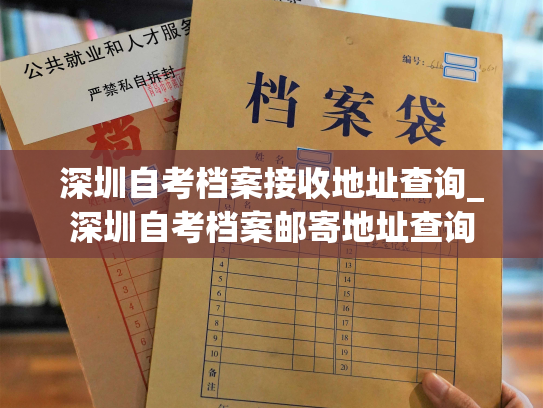 公共就业和人才服务
严禁私自拆封
编号:
档案袋
姓名
深圳自考档案接收地址查询_
深圳自考档案邮寄地址查询
1
2
3
4
5
6
7
8
9
10
11
12
13
14
15
16
17
18
19
20
备注